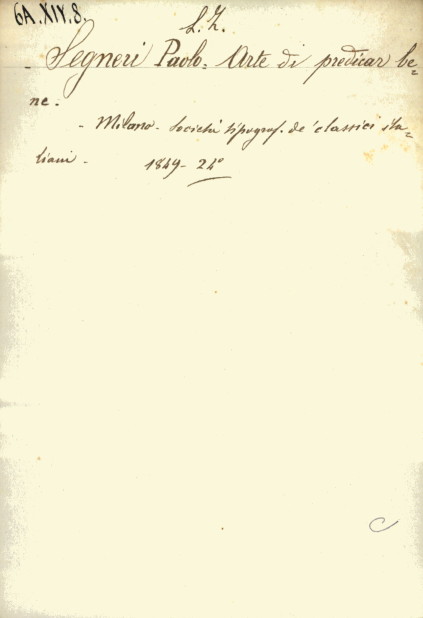 6A.XIV.8.
L.Z.
- Segneri Paolo. Arte di predicar be=
ne.
- Milano - Società tipograf. de' classici ita=
liani - 1849 - 24°
C